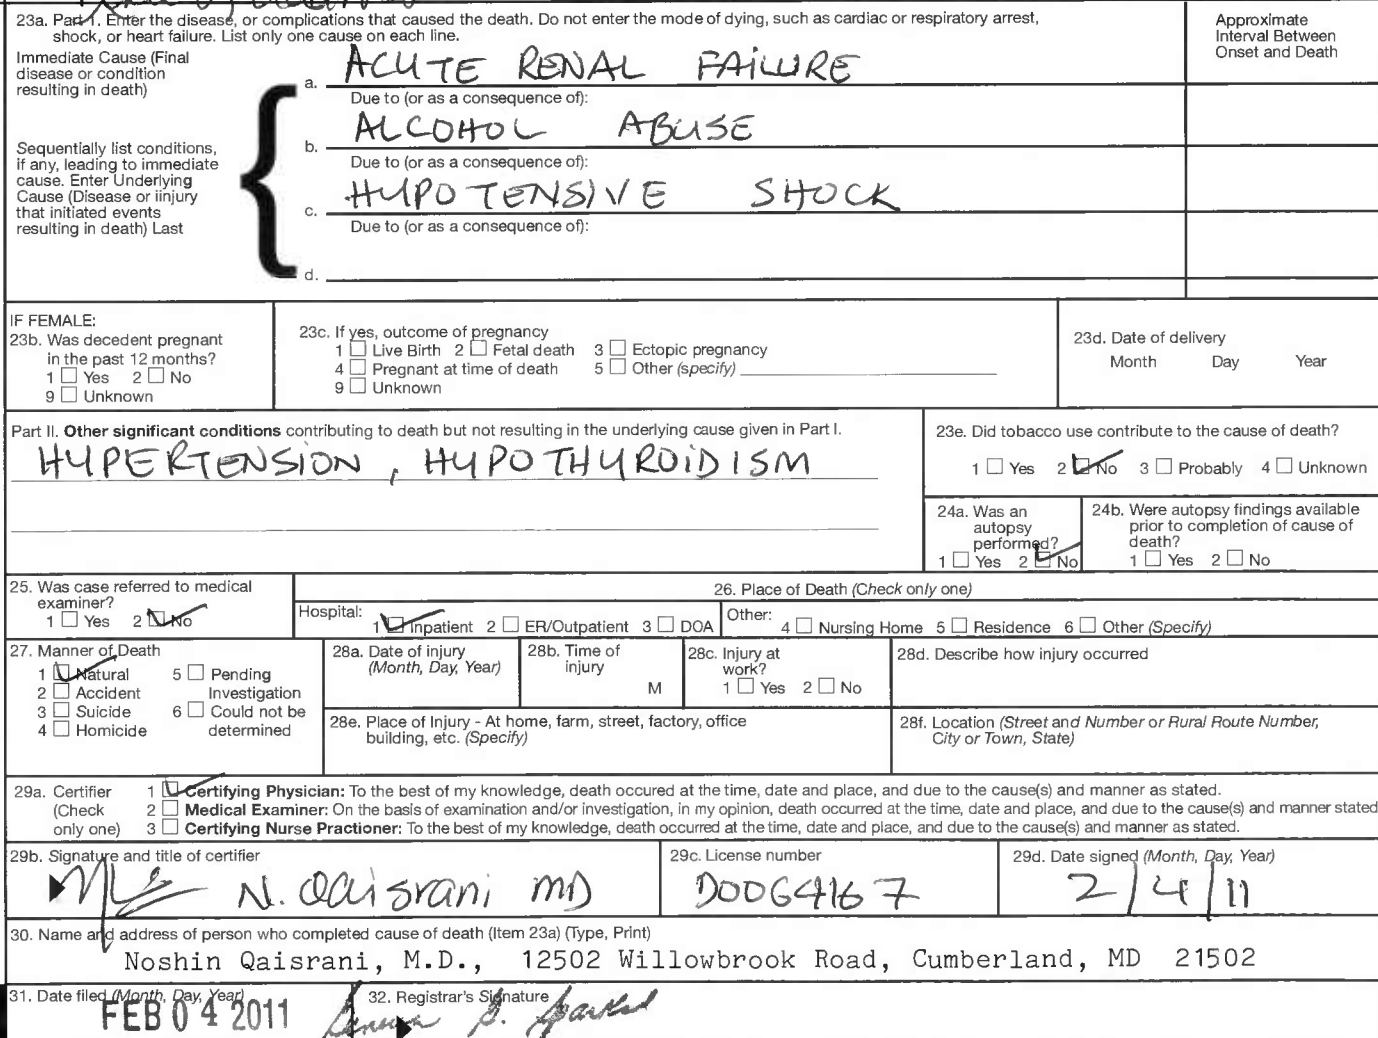 23a. Part I. Enter the disease, or complications that caused the death. Do not enter the mode of dying, such as cardiac or respiratory arrest,
shock, or heart failure. List only one cause on each line.
Approximate
Interval Between
Onset and Death
Immediate Cause (Final
disease or condition
resulting in death)
a. ACUTE RENAL FAILURE
Due to (or as a consequence of):
Sequentially list conditions,
if any, leading to immediate
cause. Enter Underlying
Cause (Disease or iinjury
that initiated events
resulting in death) Last
b. ALCOHOL ABUSE
Due to (or as a consequence of):
c. HYPOTENSIVE SHOCK
Due to (or as a consequence of):
d.
IF FEMALE:
23b. Was decedent pregnant
in the past 12 months?
1 Yes 2 No
9 Unknown
23c. If yes, outcome of pregnancy
1 Live Birth 2 Fetal death 3 Ectopic pregnancy
4 Pregnant at time of death 5 Other (specify)
9 Unknown
23d. Date of delivery
Month Day Year
Part II. Other significant conditions contributing to death but not resulting in the underlying cause given in Part I.
HYPERTENSION, HYPOTHYROIDISM
23e. Did tobacco use contribute to the cause of death?
1 Yes 2 No 3 Probably 4 Unknown
24a. Was an
autopsy
performed?
1 Yes 2 No
24b. Were autopsy findings available
prior to completion of cause of
death?
1 Yes 2 No
25. Was case referred to medical
examiner?
1 Yes 2 No
26. Place of Death (Check only one)
Hospital: 1 Inpatient 2 ER/Outpatient 3 DOA
Other: 4 Nursing Home 5 Residence 6 Other (Specify)
27. Manner of Death
1 Natural 5 Pending
2 Accident Investigation
3 Suicide 6 Could not be
4 Homicide determined
28a. Date of injury
(Month, Day, Year)
28b. Time of
injury
M
28c. Injury at
work?
1 Yes 2 No
28d. Describe how injury occurred
28e. Place of Injury - At home, farm, street, factory, office
building, etc. (Specify)
28f. Location (Street and Number or Rural Route Number,
City or Town, State)
29a. Certifier
(Check
only one)
1 Certifying Physician: To the best of my knowledge, death occured at the time, date and place, and due to the cause(s) and manner as stated.
2 Medical Examiner: On the basis of examination and/or investigation, in my opinion, death occurred at the time, date and place, and due to the cause(s) and manner stated
3 Certifying Nurse Practioner: To the best of my knowledge, death occurred at the time, date and place, and due to the cause(s) and manner as stated.
29b. Signature and title of certifier
N. Qaisrani MD
29c. License number
D0064167
29d. Date signed (Month, Day, Year)
2/4/11
30. Name and address of person who completed cause of death (Item 23a) (Type, Print)
Noshin Qaisrani, M.D., 12502 Willowbrook Road, Cumberland, MD 21502
31. Date filed (Month, Day, Year)
FEB 04 2011
32. Registrar's Signature